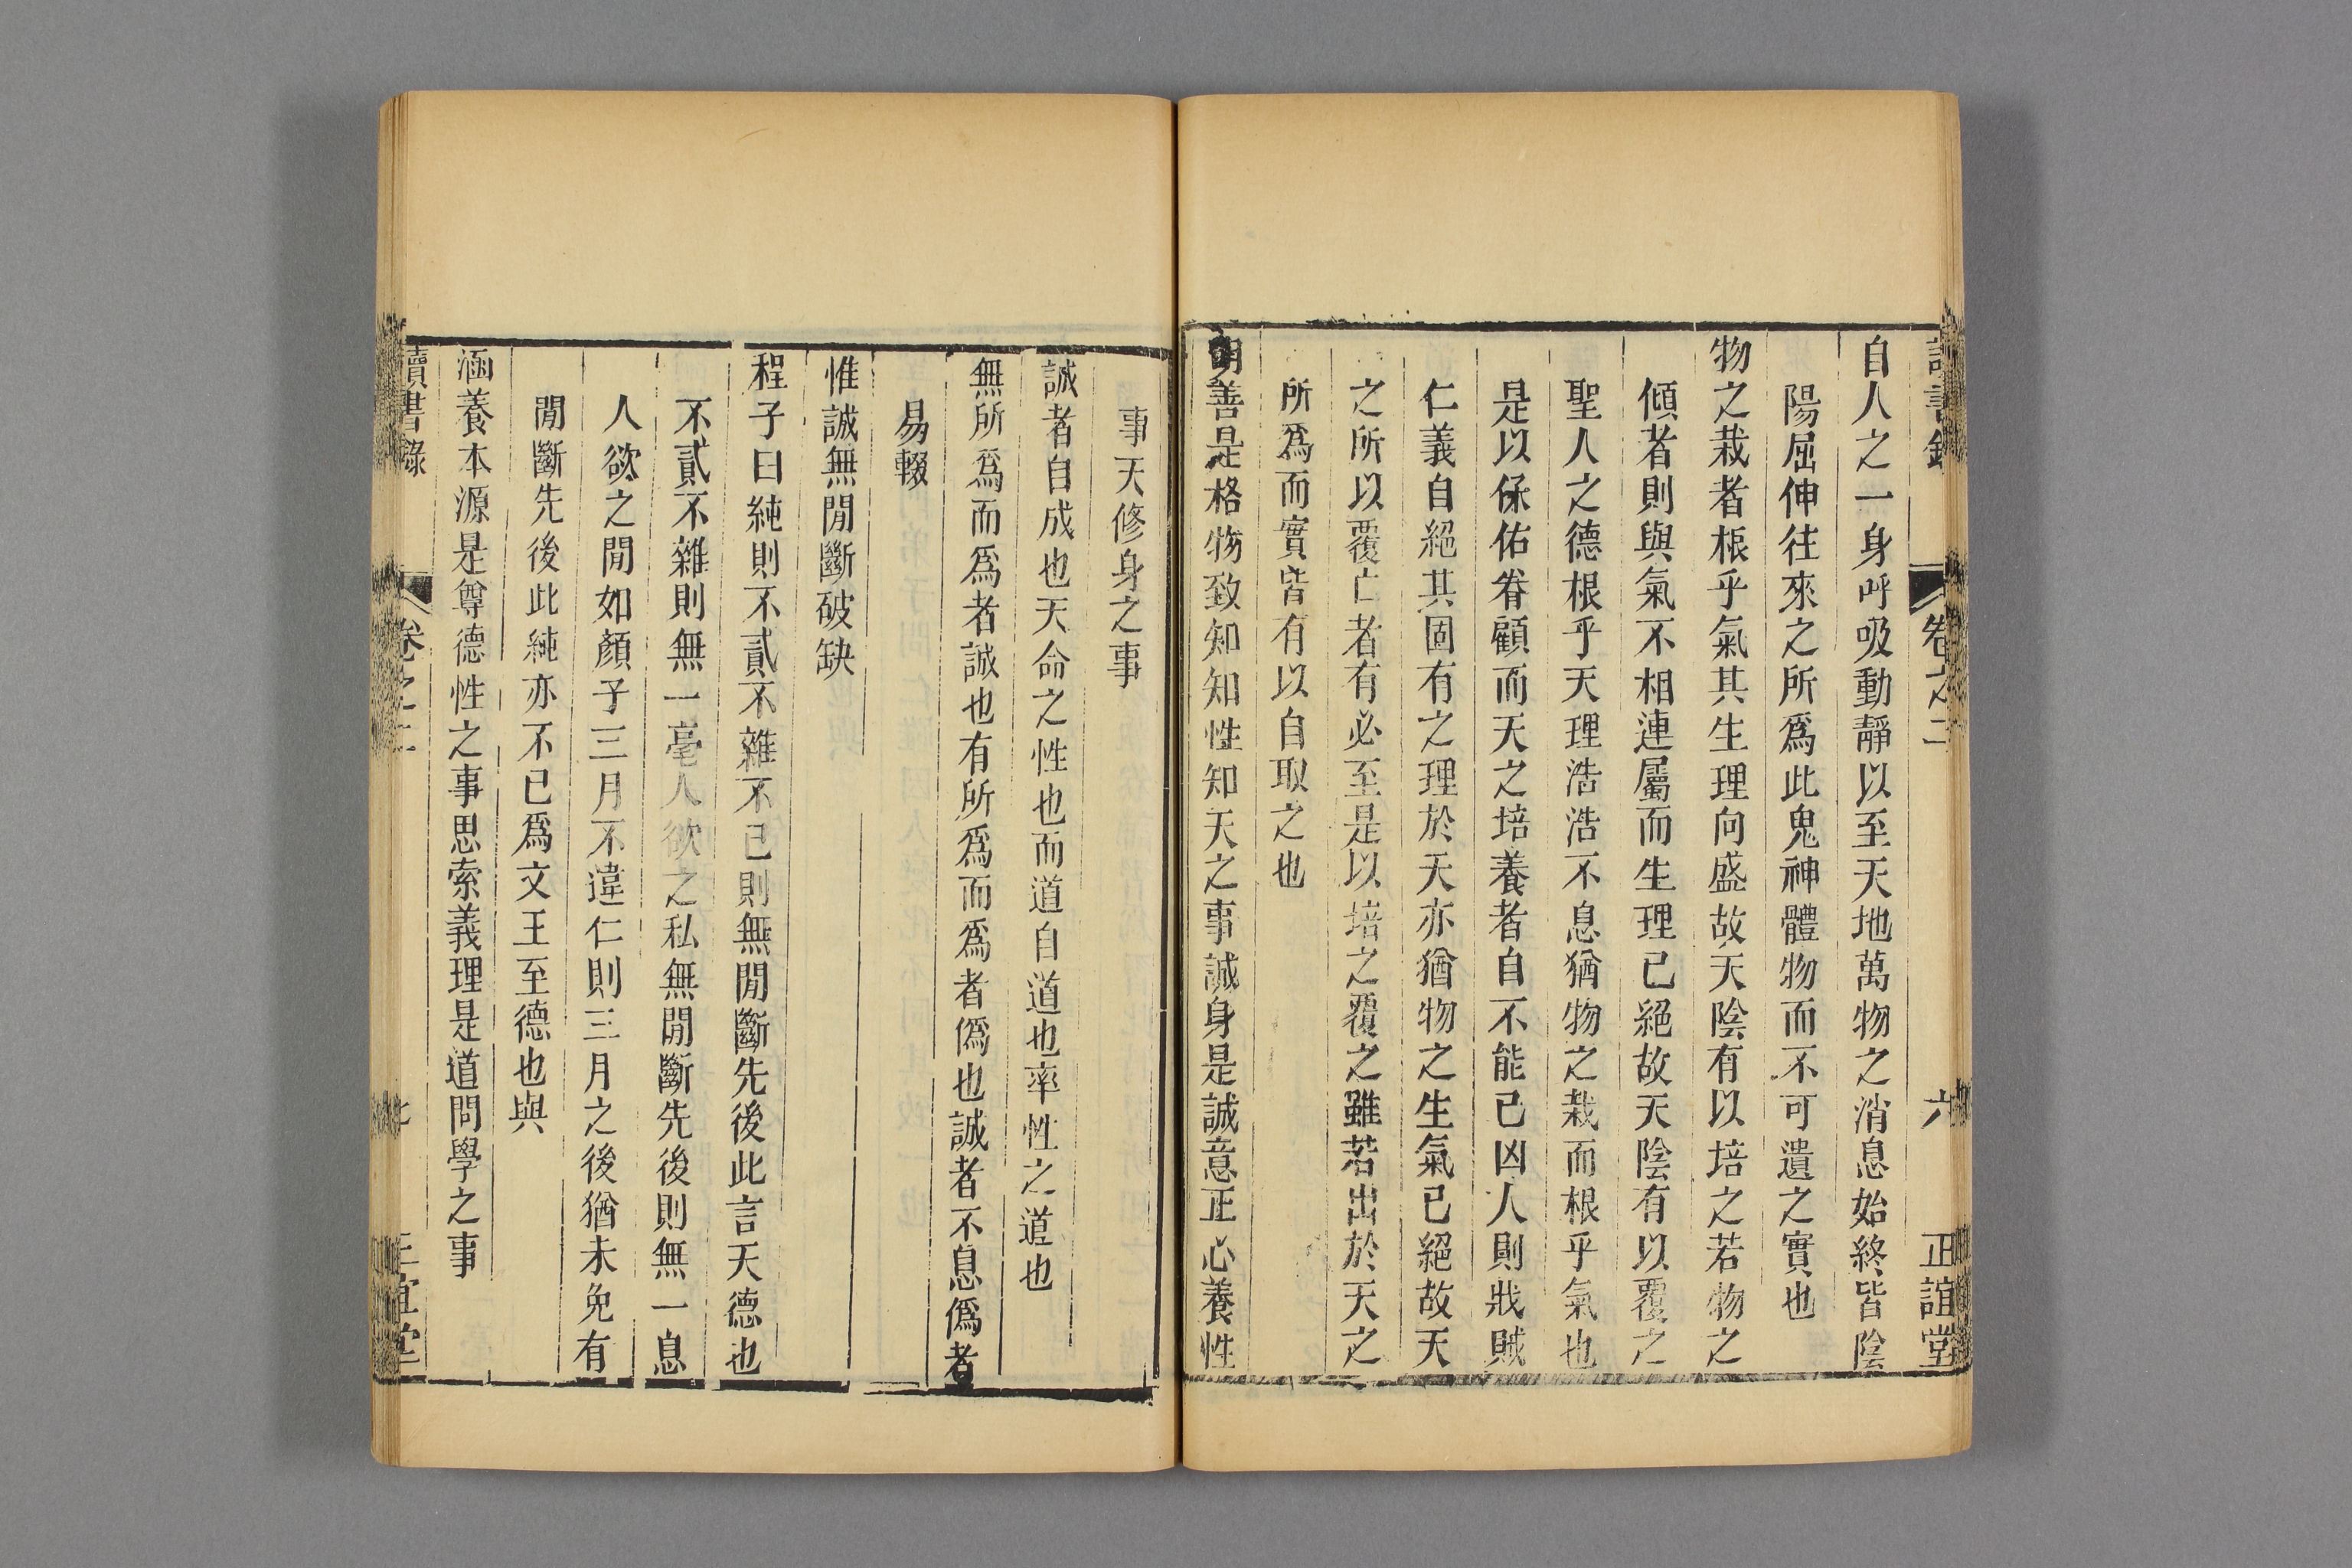 讀書錄 卷之二 六 正誼堂
自人之一身呼吸動靜以至天地萬物之消息始終皆陰
陽屈伸往來之所爲此鬼神體物而不可遺之實也
物之栽者根乎氣其生理向盛故天陰有以培之若物之
傾者則與氣不相連屬而生理已絕故天陰有以覆之
聖人之德根乎天理浩浩不息猶物之栽而根乎氣也
是以保佑眷顧而天之培養者自不能已凶人則戕賊
仁義自絕其固有之理於天亦猶物之生氣已絕故天
之所以覆亡者有必至是以培之覆之雖若出於天之
所爲而實皆有以自取之也
明善是格物致知知性知天之事誠身是誠意正心養性
事天修身之事
誠者自成也天命之性也而道自道也率性之道也
無所爲而爲者誠也有所爲而爲者僞也誠者不息僞者
易輟
惟誠無閒斷破缺
程子曰純則不貳不雜不已則無閒斷先後此言天德也
不貳不雜則無一毫人欲之私無閒斷先後則無一息
人欲之閒如顏子三月不違仁則三月之後猶未免有
閒斷先後此純亦不已爲文王至德也與
涵養本源是尊德性之事思索義理是道問學之事
讀書錄 卷之二 七 正誼堂